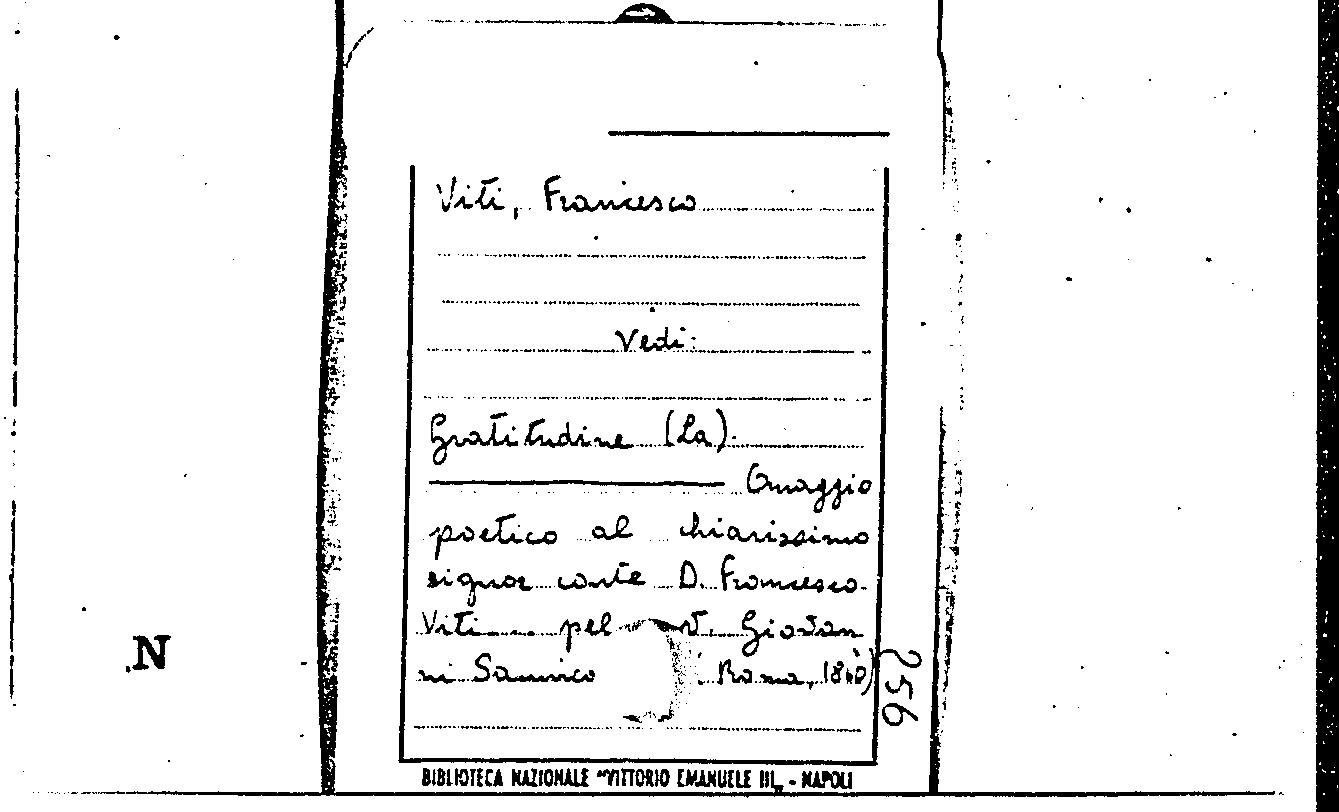 Viti, Francesco
Vedi:
Gratitudine (La).
Omaggio
poetico al chiarissimo
signor conte D. Francesco
Viti pel Giovan
ni Sannico Roma,
256
N
BIBLIOTECA NAZIONALE "VITTORIO EMANUELE III„ - NAPOLI